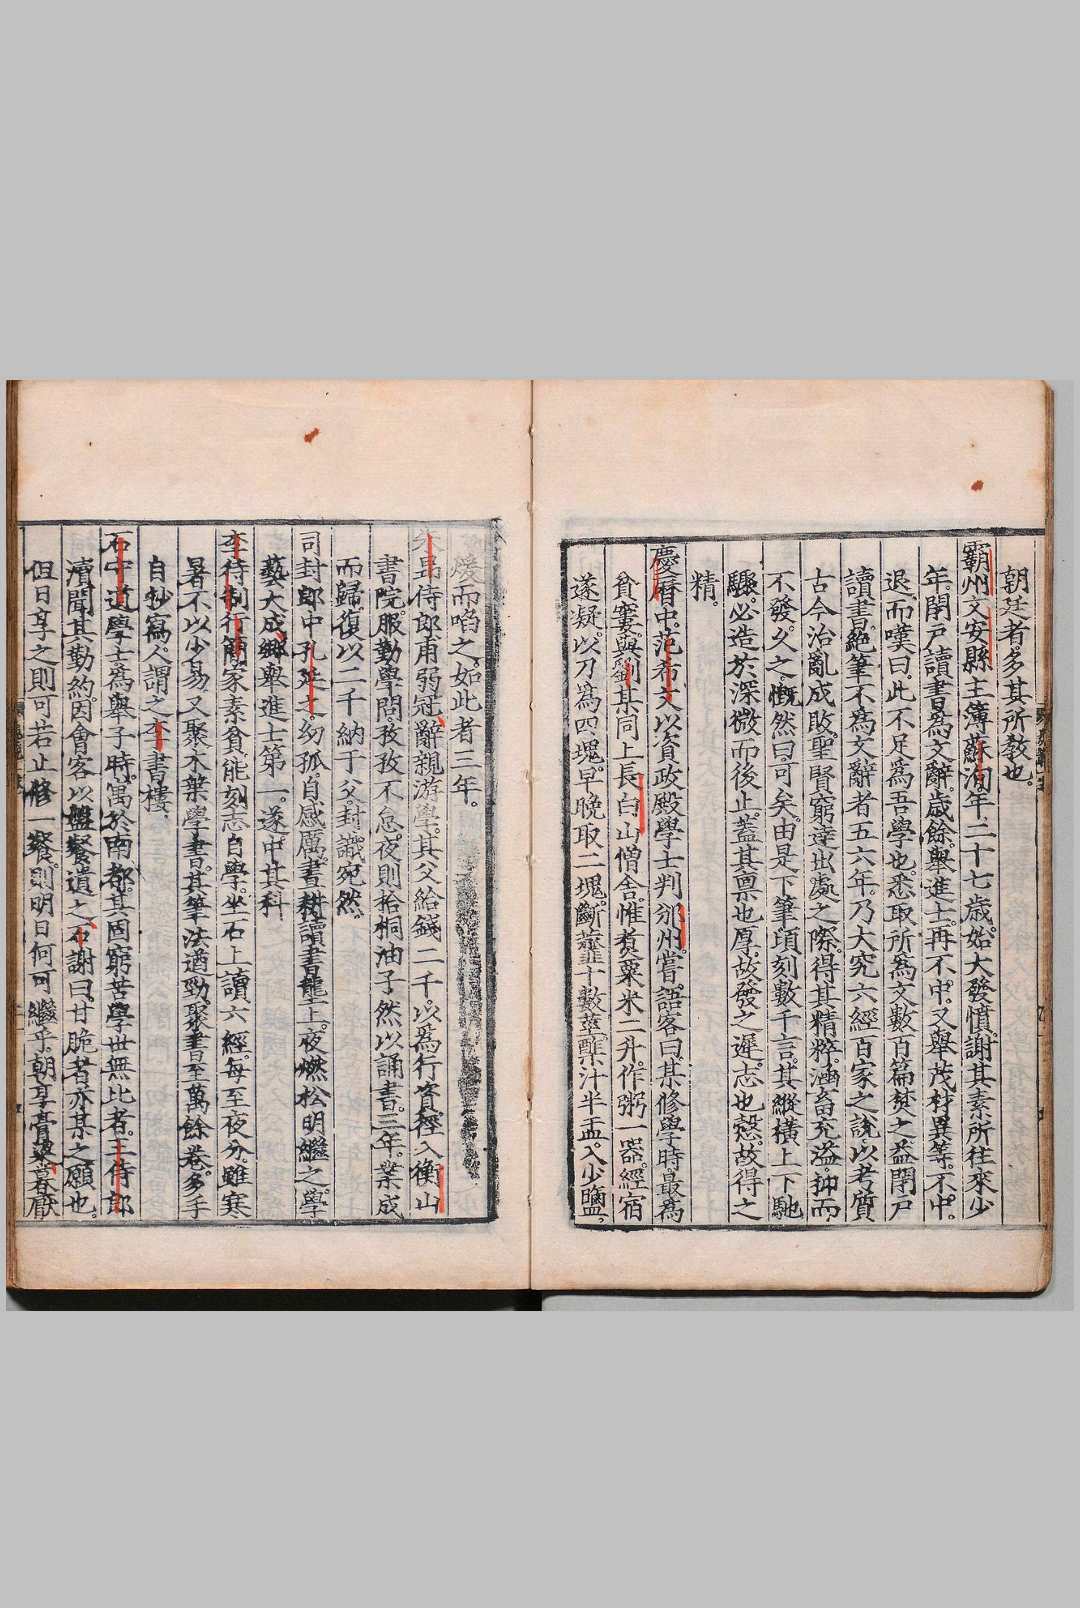 朝廷者多其所教也
霸州文安縣主簿蘇洵年二十七歲始大發憤謝其素所往來少
年閉戸讀書爲文辭歲餘舉進士再不中又舉茂材異等不中
退而嘆曰此不足爲吾學也悉取所爲文數百篇焚之益閉戸
讀書絶筆不爲文辭者五六年乃大究六經百家之說以考質
古今治亂成敗聖賢窮達出處之際得其精粹涵畜充溢抑而
不發久之慨然曰可矣由是下筆頃刻數千言其縱橫上下馳
驟必造於深微而後止蓋其禀也厚故發之遲志也愨故得之
精
慶曆中范希文以資政殿學士判邠州嘗語客曰某修學時最爲
貧窶與劉某同上長白山僧舍惟煑粟米二升作粥一器經宿
遂凝以刀爲四塊早晚取二塊斷虀十數莖酢汁半盂入少鹽
煖而啗之如此者三年
朱昂侍郎甫弱冠辭親游學其父給錢二千以爲行資徑入衡山
書院服勤學問孜孜不怠夜則拾桐油子然以誦書三年業成
而歸復以二千納于父封識宛然
司封郎中孔延之幼孤自感厲晝耕讀書壟上夜燃松明繼之學
藝大成鄉舉進士第一遂中其科
李待制行簡家素貧能刻志自學坐石上讀六經每至夜分雖寒
暑不以少易又聚木葉學書其筆法遒勁聚書至萬餘卷多手
自抄寫人謂之李書樓
石守道學士爲舉子時寓於南都其固窮苦學世無比者王侍郎
瀆聞其勤約因會客以盤餐遺之石謝曰甘脆者亦某之願也
但日享之則可若止修一餐則明日何可繼乎朝享膏粱暮厭